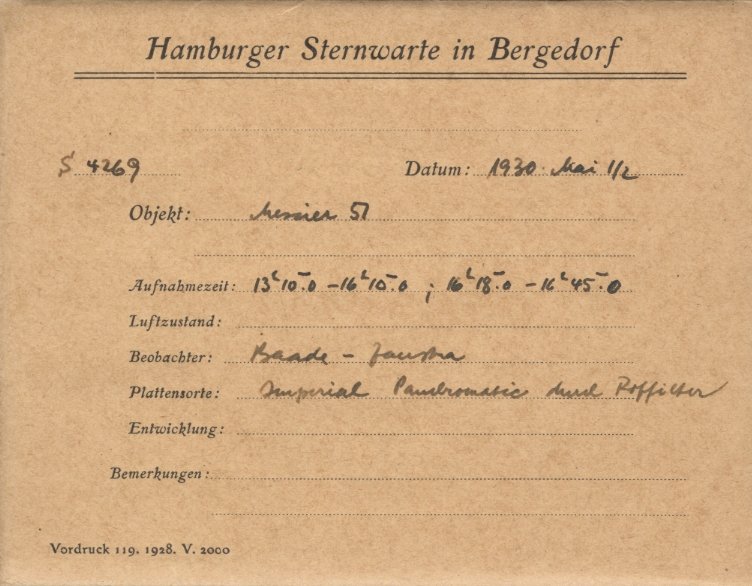 Hamburger Sternwarte in Bergedorf
S 4269 Datum: 1930 Mai 1/2
Objekt: Messier 51
Aufnahmezeit: 13ʰ10ᵐ.0 – 16ʰ10ᵐ.0 ; 16ʰ18ᵐ.0 – 16ʰ45ᵐ.0
Luftzustand:
Beobachter: Baade –
Plattensorte: Imperial Panchromatic durch Rotfilter
Entwicklung:
Bemerkungen:
Vordruck 119. 1928. V. 2000